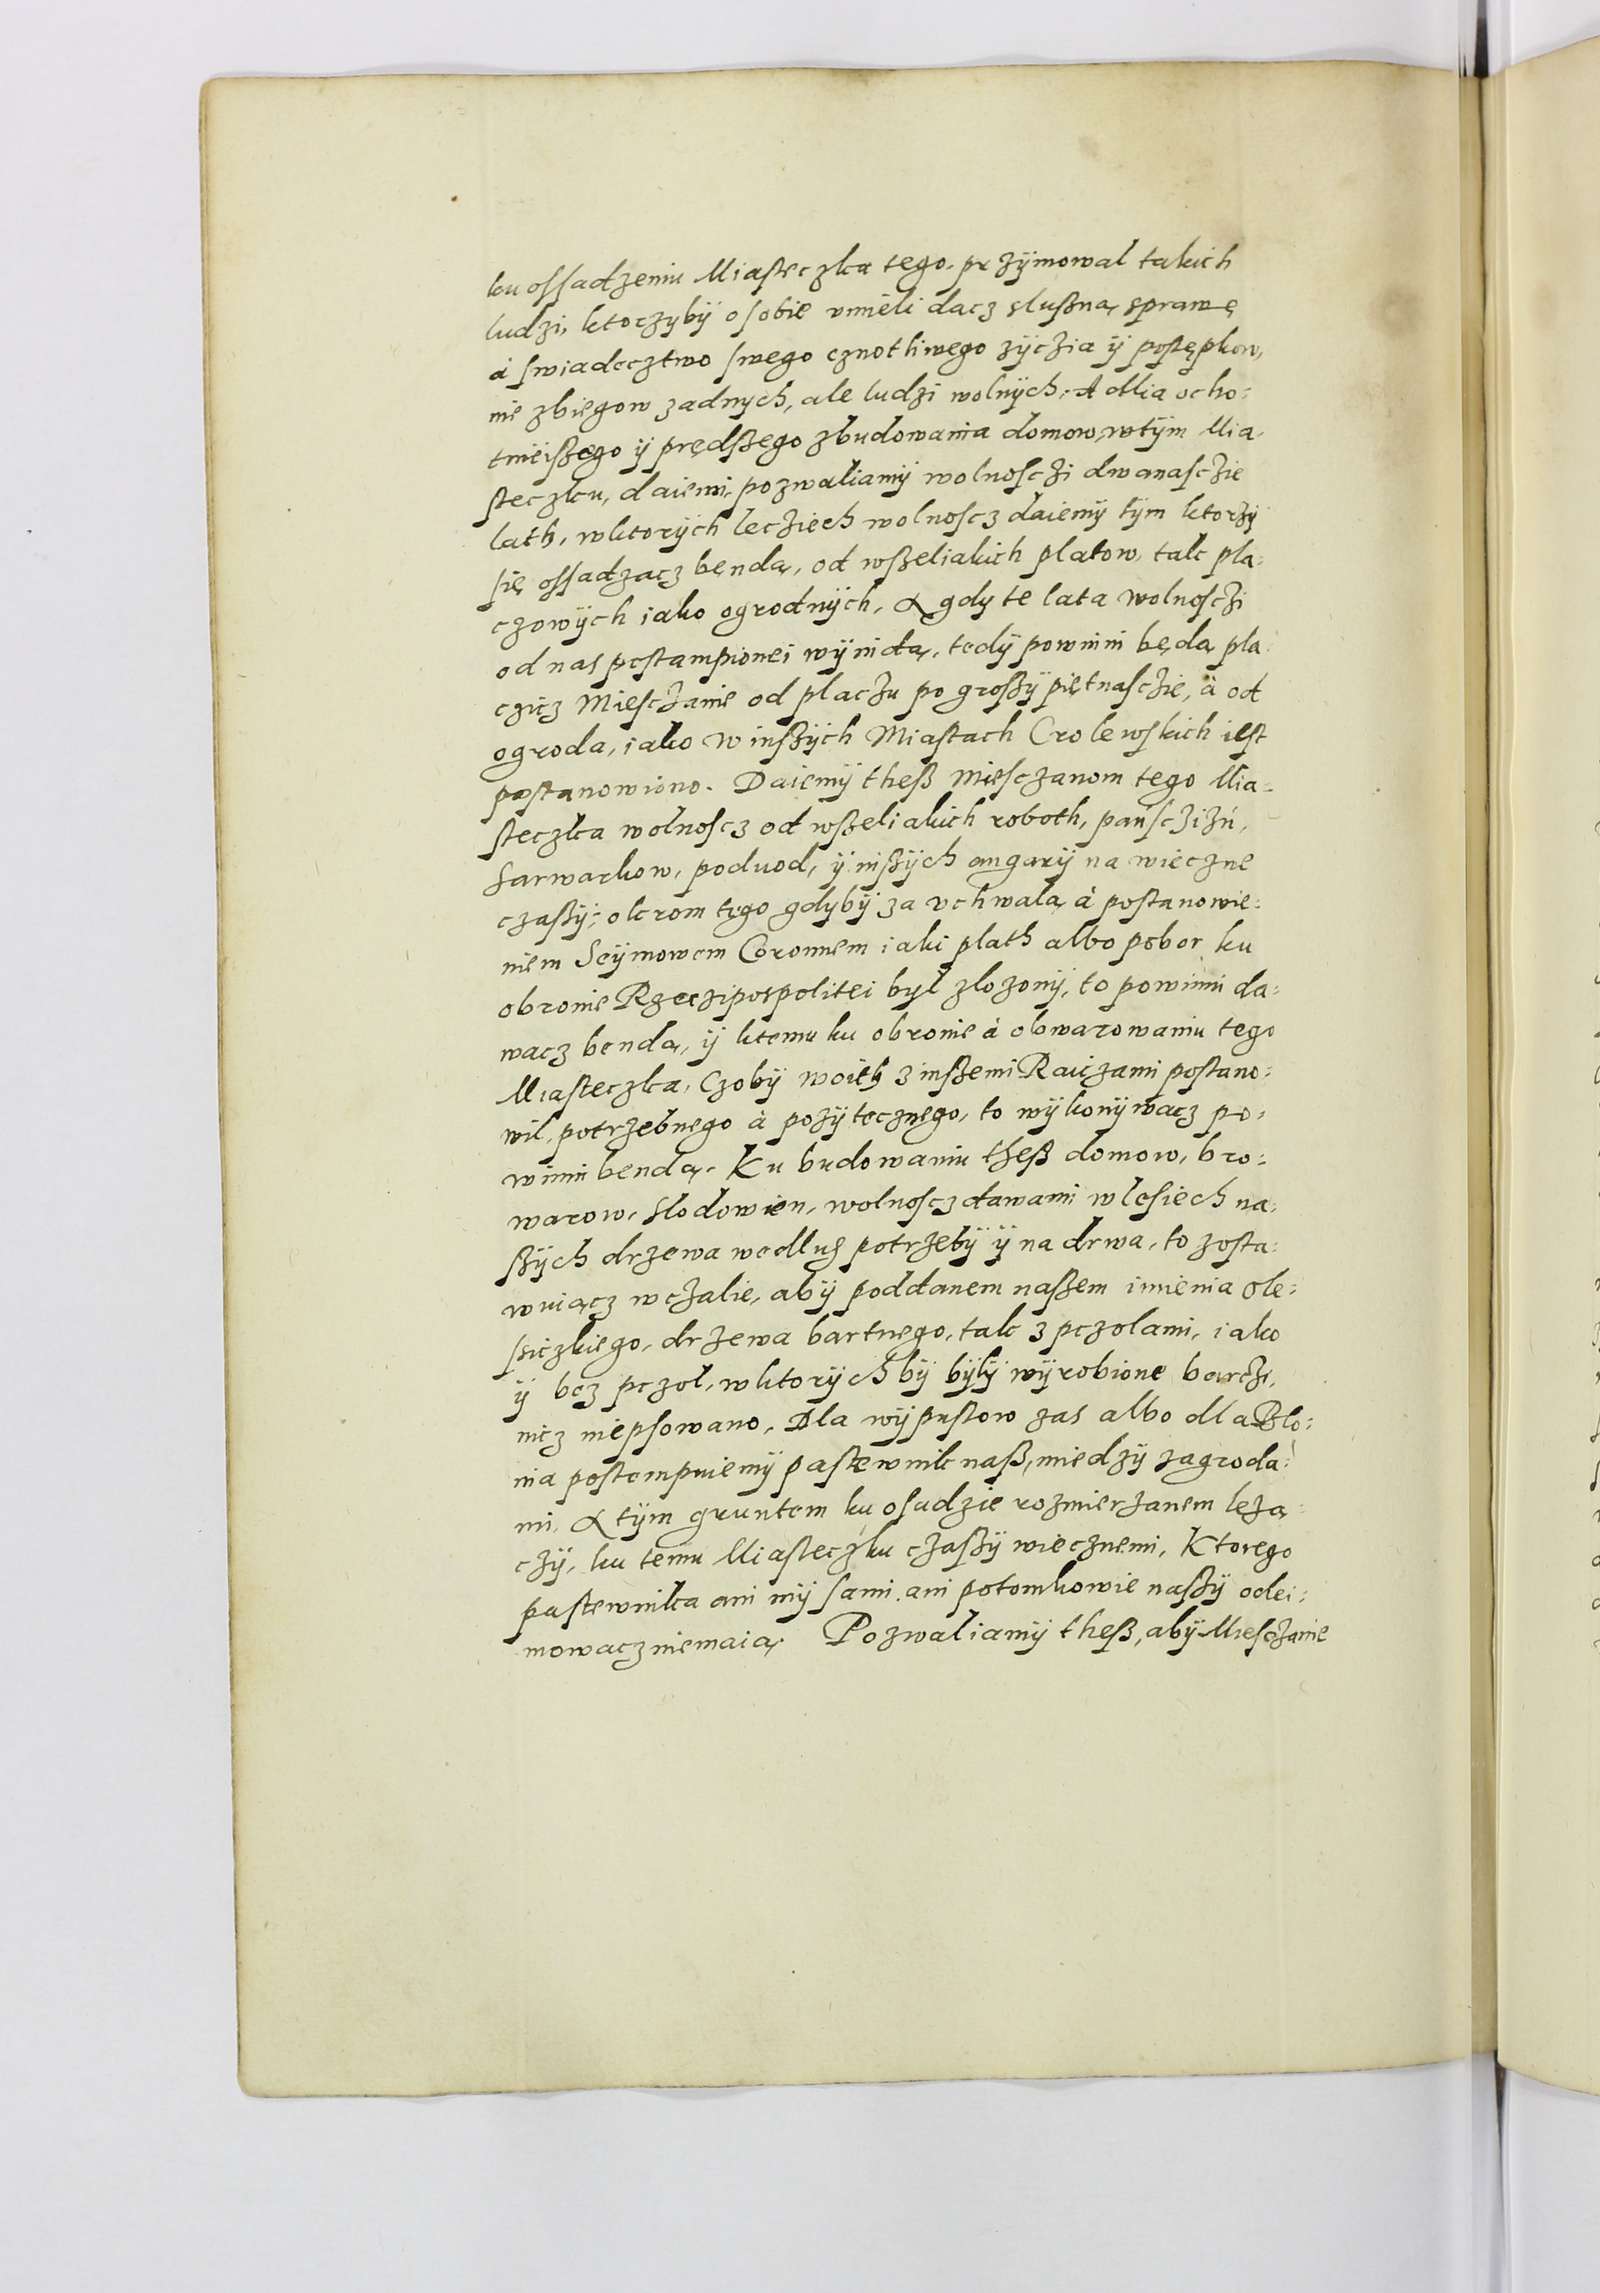 ku ossadzeniu Miasteczka tego, przÿmowal takich
ludzi, ktorzybÿ o sobie umieli dacz slußną sprawę
à swiadecztwo swego cznotliwego zÿczia ÿ postępkow,
nie zbiegow zadnych, ale ludzi wolnÿch. A dlia ocho:
tnieißego ÿ prędßego zbudowania domow, w tÿm Mia:
steczku, daiemi, pozwaliamÿ wolnosczi dwanasczie
lath, w ktorÿch lecziech wolnoscz daiemÿ tÿm ktorzÿ
się ossadzacz bęndą, od wßeliakich platow, tak pla:
czowÿch iako ogrodnÿch, A gdy te lata wolnosczi
od nas postampionei wÿnidą, tedÿ powinni będą pla:
czicz Miesczanie od placzu po großÿ piętnasczie, à od
ogroda, iako w inßÿch Miastach Crolewskich iest
postanowiono. Daiemÿ theß Miesczanom tego Mia:
steczka wolnoscz od wßeliakich roboth, pańsczizń,
sarwarkow, poduod, ÿ inßÿch angarÿ na wieczne
czaßÿ: okrom tego gdybÿ za uchwalą à postanowie:
niem Seÿmowem Coronnem iaki plath albo pobor ku
obronie Rzeczipospolitei był zlozonÿ, to powinni da:
wacz bendą, ÿ ktemu ku obronie à obwarowaniu tego
Miasteczka, Czobÿ woith z inßemi Raiczami postano:
wil, potrzebnego à pozÿtecznego, to wÿkonÿwacz po:
winni bendą. Ku budowaniu theß domow, bro:
warow, slodowien, wolnoscz dawami w lesiech na:
ßÿch drzewa wedlug potrzebÿ ÿ na drwa, to zosta:
wuiącz w czalie, abÿ poddanem naßem imienia Ole:
ssiczkiego, drzewa bartnego, tak z pczolami, iako
ÿ bez pczol, w ktorÿch bÿ bÿlÿ wÿrobione barczi,
nicz niepsowano. Dla wÿpustow zas albo dla Blo:
nia postempuiemÿ pastewnik naß, miedzÿ zagroda:
mi, A tÿm gruntem ku osadzie rozmierzanem leżą:
czÿ, ku temu Miasteczku czaßÿ wiecznemi, Ktorego
pastewnika ani mÿ sami, ani potomkowie naßÿ odei:
mowacz niemaią. Pozwaliamÿ theß, abÿ Miesczanie